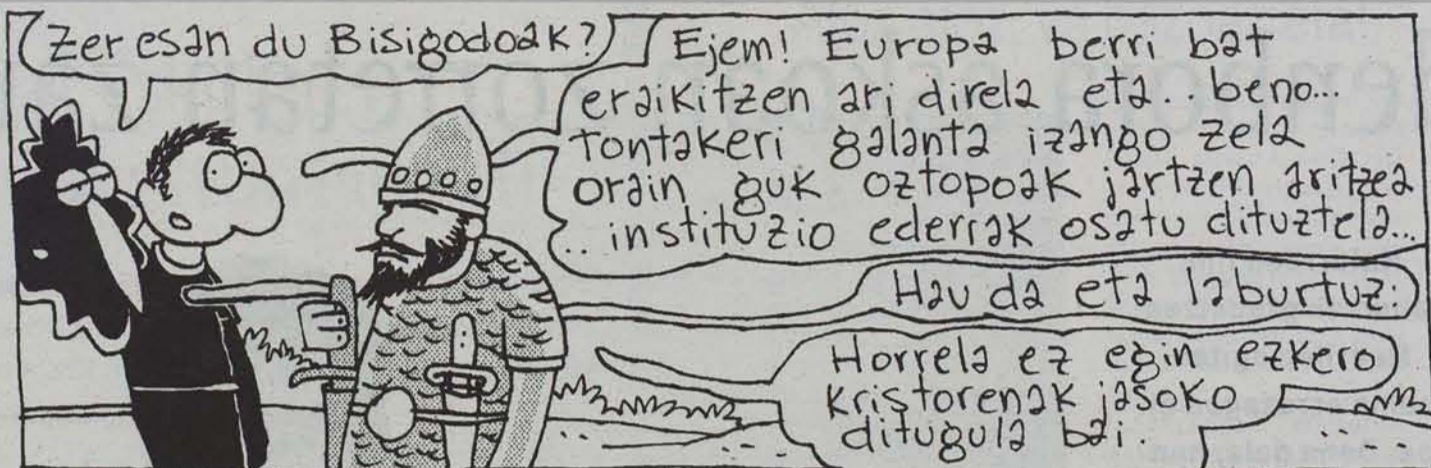 Zer esan du Bisigodoak?
Ejem! Europa berri bat
eraikitzen ari direla eta. beno...
tontakeri galanta izango zela
orain guk oztopoak jartzen aritzea
.. instituzio ederrak osatu dituztela...
Hau da eta laburtuz:
Horrela ez egin ezkero
kristorenak jasoko
ditugula bai.